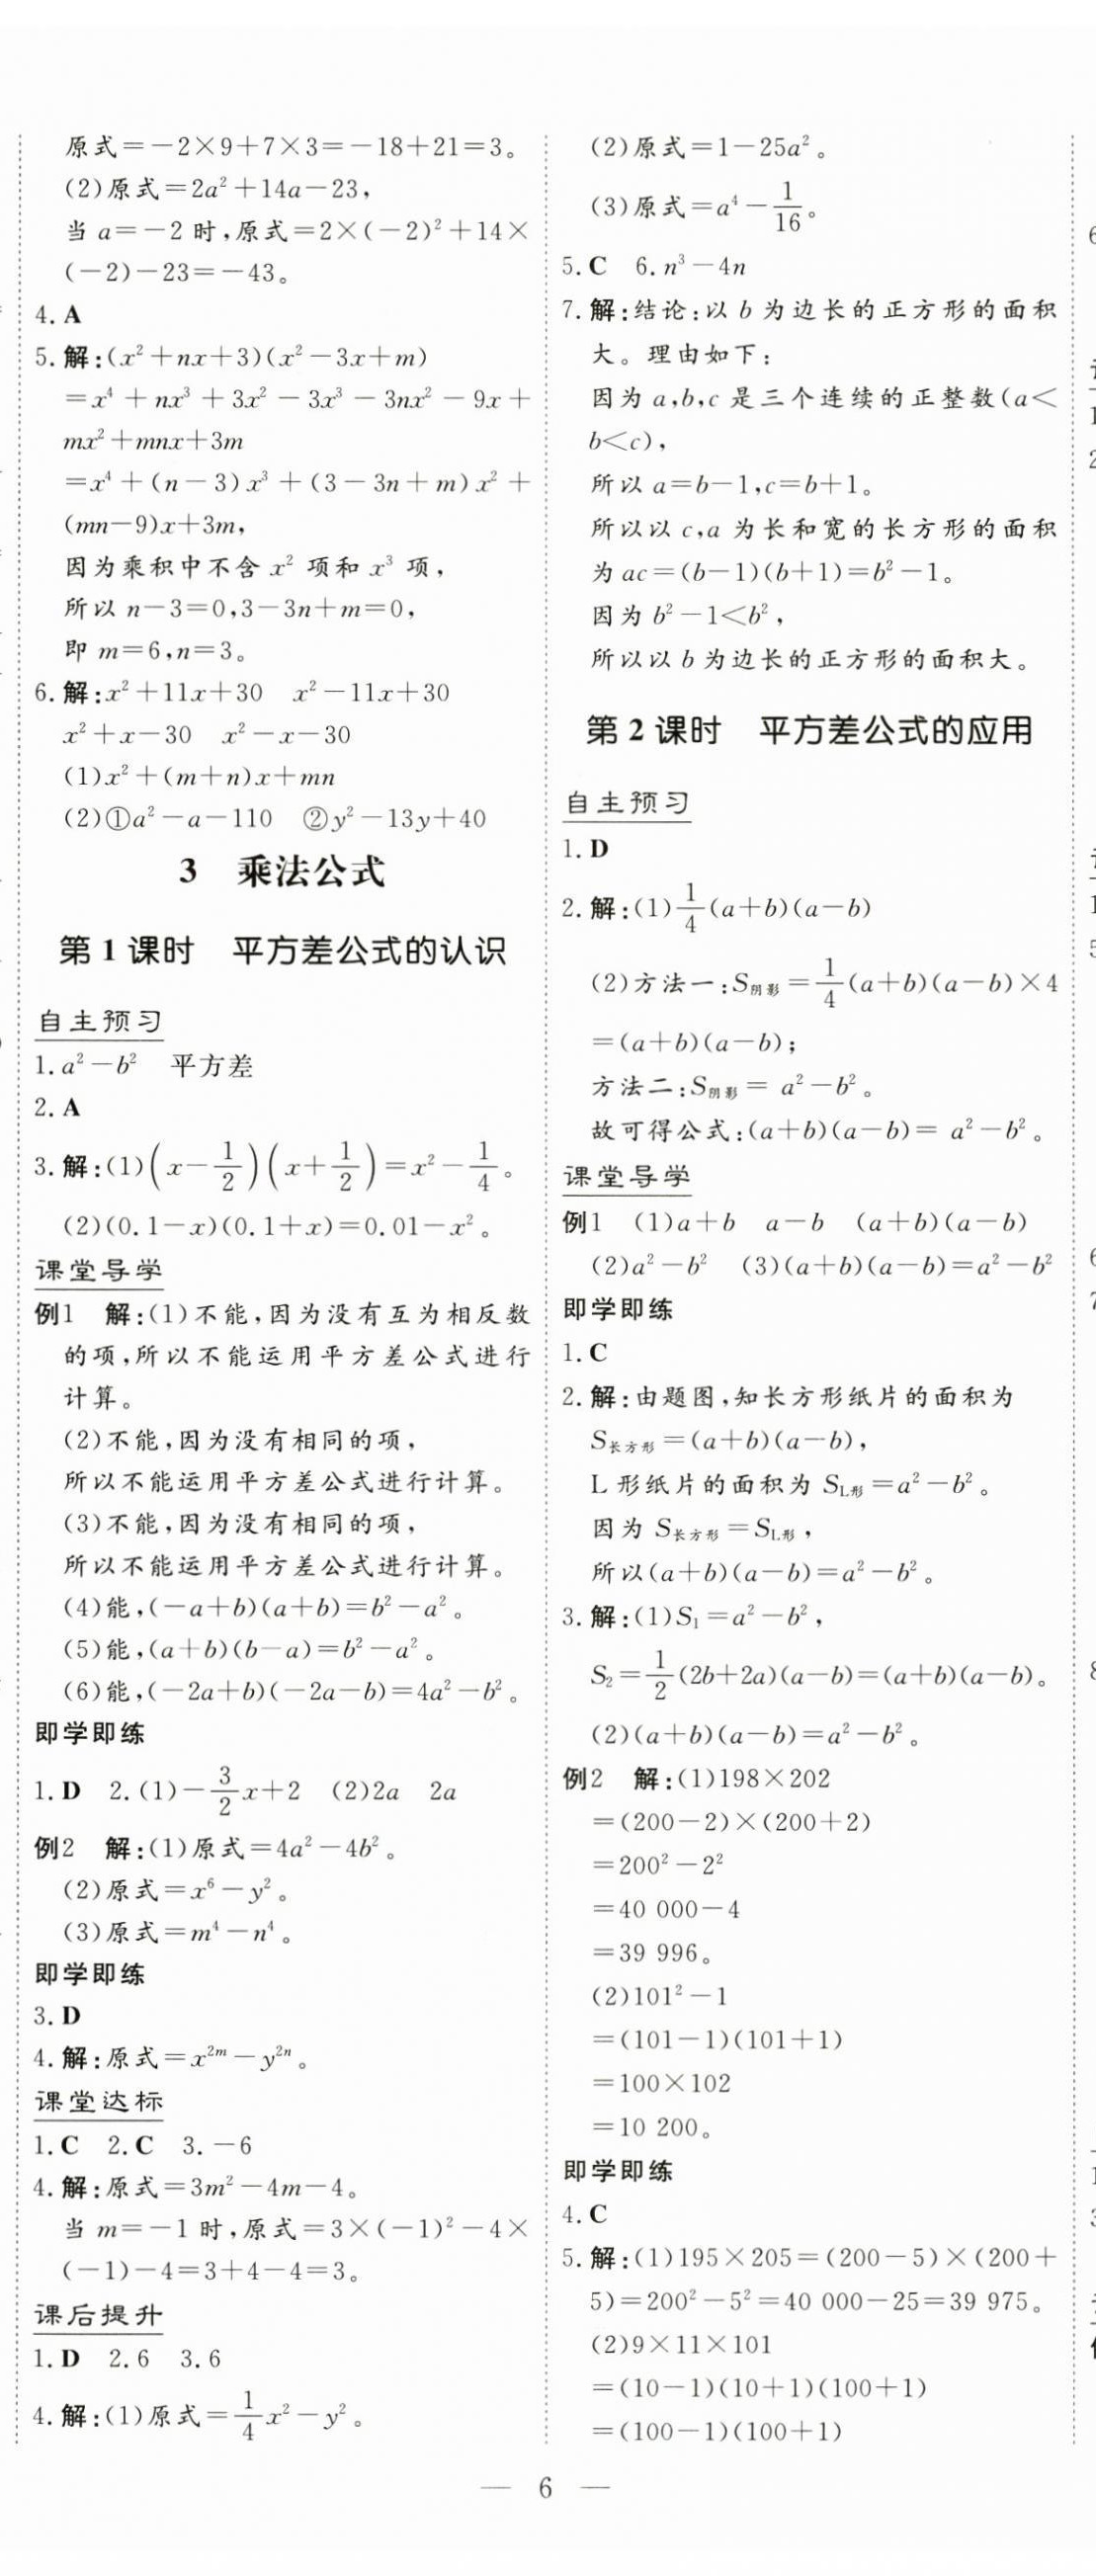 原式=-2×9+7×3=-18+21=3。
(2)原式=2a²+14a-23,
当 a=-2 时,原式=2×(-2)²+14×
(-2)-23=-43。
4. A
5. 解:(x²+nx+3)(x²-3x+m)
=x⁴+nx³+3x²-3x³-3nx²-9x+
mx²+mnx+3m
=x⁴+(n-3)x³+(3-3n+m)x²+
(mn-9)x+3m,
因为乘积中不含 x² 项和 x³ 项,
所以 n-3=0,3-3n+m=0,
即 m=6,n=3。
6. 解:x²+11x+30 x²-11x+30
x²+x-30 x²-x-30
(1)x²+(m+n)x+mn
(2)①a²-a-110 ②y²-13y+40
3 乘法公式
第 1 课时 平方差公式的认识
自主预习
1. a²-b² 平方差
2. A
3. 解:(1)(x-1/2)(x+1/2)=x²-1/4。
(2)(0.1-x)(0.1+x)=0.01-x²。
课堂导学
例1 解:(1)不能,因为没有互为相反数
的项,所以不能运用平方差公式进行
计算。
(2)不能,因为没有相同的项,
所以不能运用平方差公式进行计算。
(3)不能,因为没有相同的项,
所以不能运用平方差公式进行计算。
(4)能,(-a+b)(a+b)=b²-a²。
(5)能,(a+b)(b-a)=b²-a²。
(6)能,(-2a+b)(-2a-b)=4a²-b²。
即学即练
1. D 2. (1)-3/2x+2 (2)2a 2a
例2 解:(1)原式=4a²-4b²。
(2)原式=x⁶-y²。
(3)原式=m⁴-n⁴。
即学即练
3. D
4. 解:原式=x²ᵐ-y²ⁿ。
课堂达标
1. C 2. C 3. -6
4. 解:原式=3m²-4m-4。
当 m=-1 时,原式=3×(-1)²-4×
(-1)-4=3+4-4=3。
课后提升
1. D 2. 6 3. 6
4. 解:(1)原式=1/4x²-y²。
(2)原式=1-25a²。
(3)原式=a⁴-1/16。
5. C 6. n³-4n
7. 解:结论:以 b 为边长的正方形的面积
大。理由如下:
因为 a,b,c 是三个连续的正整数(a<
b<c),
所以 a=b-1,c=b+1。
所以以 c,a 为长和宽的长方形的面积
为 ac=(b-1)(b+1)=b²-1。
因为 b²-1<b²,
所以以 b 为边长的正方形的面积大。
第 2 课时 平方差公式的应用
自主预习
1. D
2. 解:(1)1/4(a+b)(a-b)
(2)方法一:S阴影=1/4(a+b)(a-b)×4
=(a+b)(a-b);
方法二:S阴影= a²-b²。
故可得公式:(a+b)(a-b)= a²-b²。
课堂导学
例1 (1)a+b a-b (a+b)(a-b)
(2)a²-b² (3)(a+b)(a-b)=a²-b²
即学即练
1. C
2. 解:由题图,知长方形纸片的面积为
S长方形=(a+b)(a-b),
L 形纸片的面积为 SL形=a²-b²。
因为 S长方形=SL形,
所以(a+b)(a-b)=a²-b²。
3. 解:(1)S₁=a²-b²,
S₂=1/2(2b+2a)(a-b)=(a+b)(a-b)。
(2)(a+b)(a-b)=a²-b²。
例2 解:(1)198×202
=(200-2)×(200+2)
=200²-2²
=40 000-4
=39 996。
(2)101²-1
=(101-1)(101+1)
=100×102
=10 200。
即学即练
4. C
5. 解:(1)195×205=(200-5)×(200+
5)=200²-5²=40 000-25=39 975。
(2)9×11×101
=(10-1)(10+1)(100+1)
=(100-1)(100+1)
— 6 —